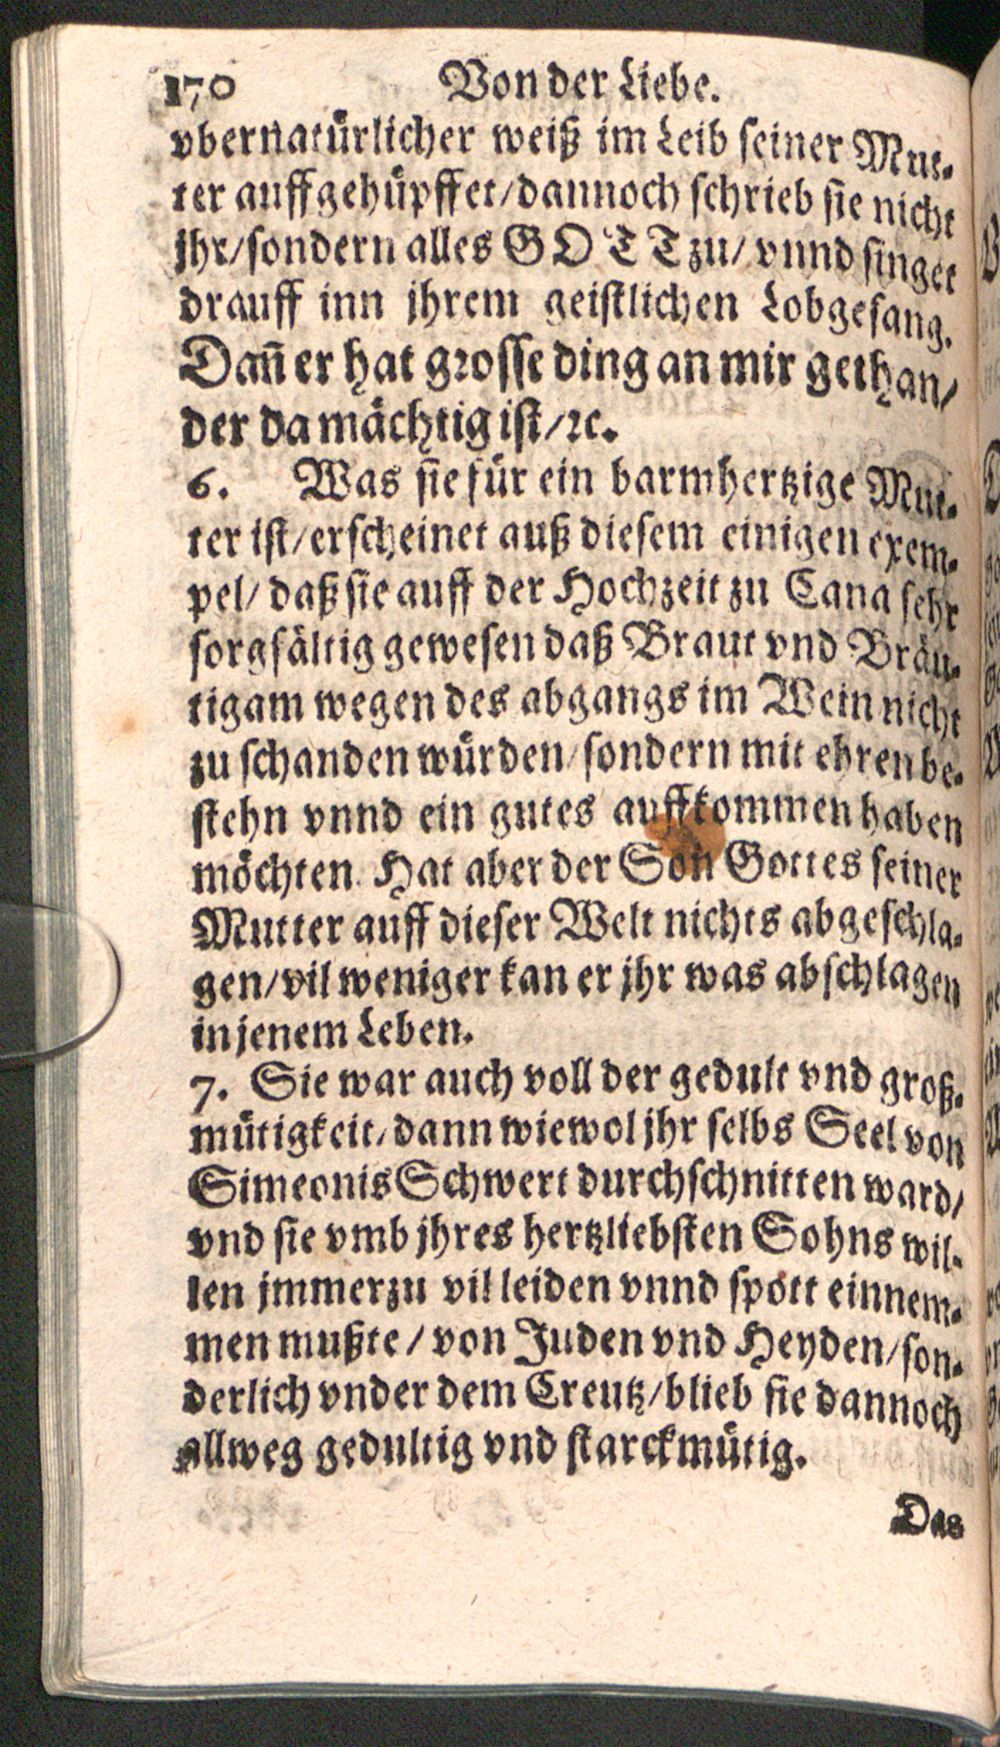 170 Von der Liebe.
vbernatürlicher weiß im Leib seiner Mut-
ter auffgehüpffet/dannoch schrieb sie nicht
jhr/sondern alles GOTT zu/ vnnd singet
drauff inn jhrem geistlichen Lobgesang.
Dañ er hat grosse ding an mir gethan/
der da mächtig ist/ꝛc.
6. Was sie für ein barmhertzige Mut-
ter ist/erscheinet auß diesem einigen exem-
pel/ daß sie auff der Hochzeit zu Cana sehr
sorgfältig gewesen daß Braut vnd Bräu-
tigam wegen des abgangs im Wein nicht
zu schanden würden/sondern mit ehren be-
stehn vnnd ein gutes auffkommen haben
möchten. Hat aber der Son Gottes seiner
Mutter auff dieser Welt nichts abgeschla-
gen/vil weniger kan er jhr was abschlagen
in jenem Leben.
7. Sie war auch voll der gedult vnd groß-
mütigkeit/dann wiewol jhr selbs Seel von
Simeonis Schwert durchschnitten ward/
vnd sie vmb jhres hertzliebsten Sohns wil-
len jmmerzu vil leiden vnnd spott einnem-
men mußte/ von Juden vnd Heyden/son-
derlich vnder dem Creutz/blieb sie dannoch
allweg gedultig vnd starckmütig.
Das